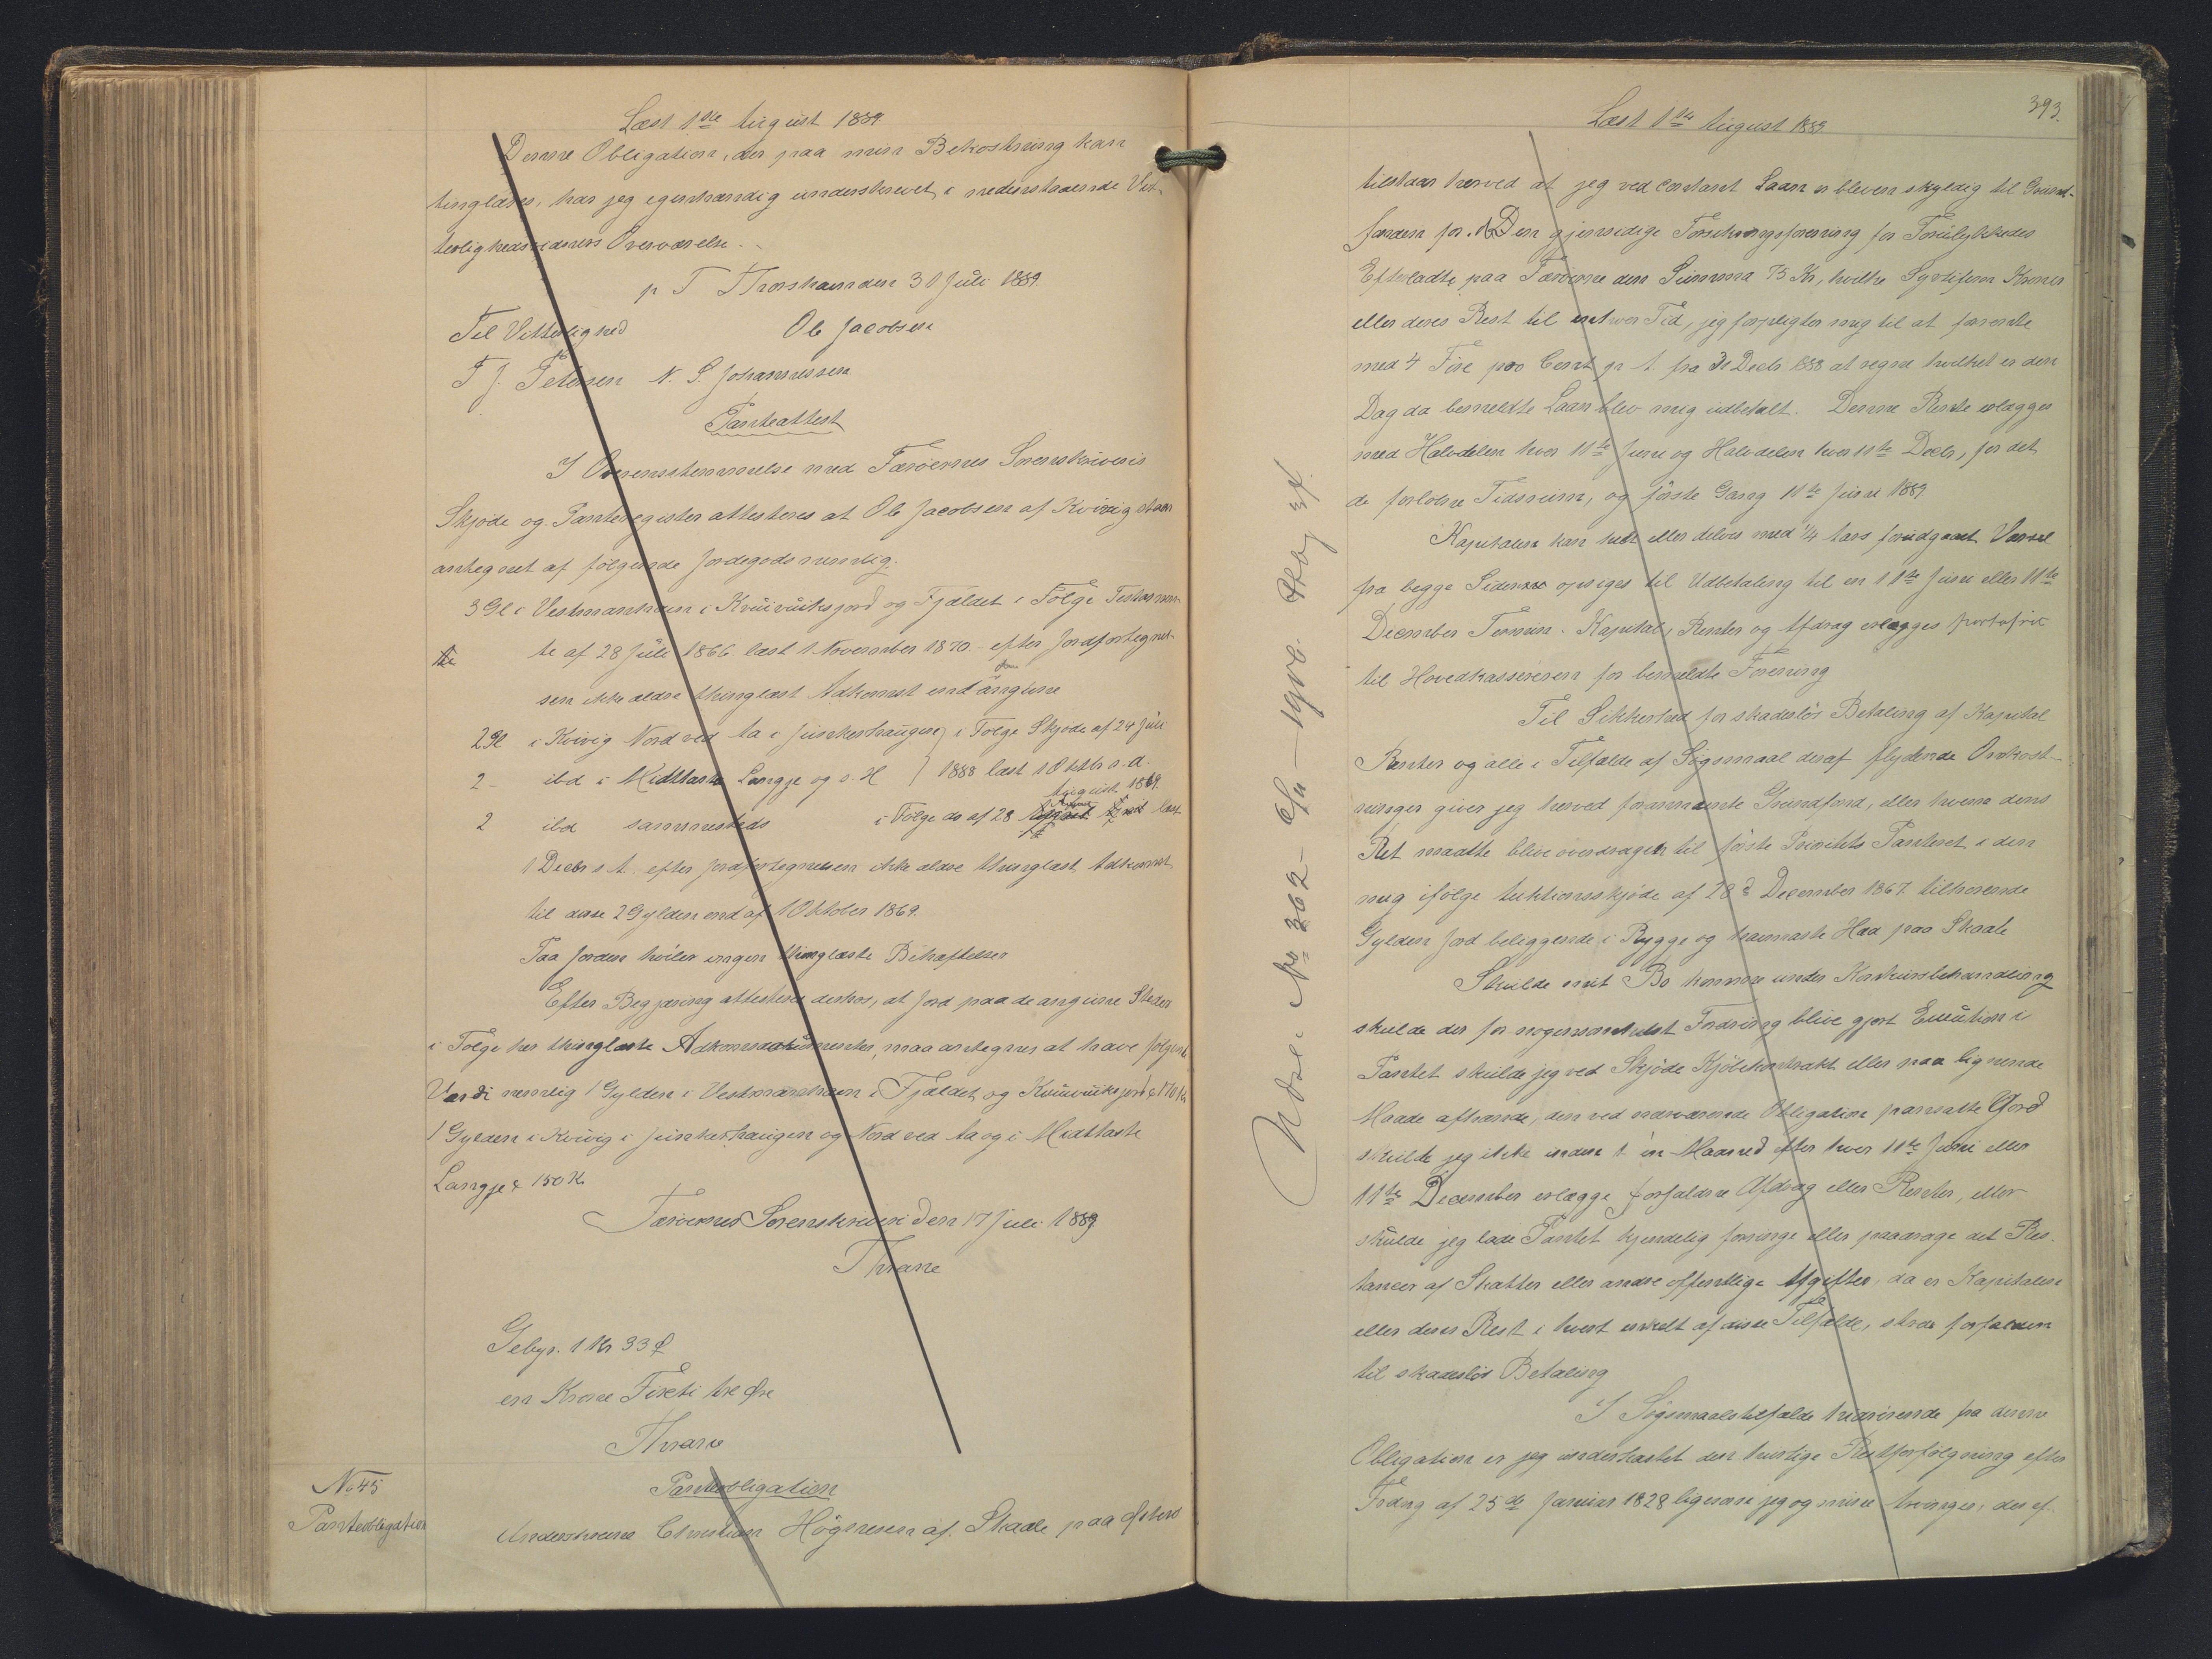 Læst 1ste August 1889.
Denne Obligation, der paa min Bekostning kan
tinglæses, har jeg egenhændig underskrevet i nedenstaaende Vit-
terlighedsvidners Overværelse.
p T Thorshavn den 30 Juli 1889.
Til Vitterlighed Ole Jacobsen
T J. Petersen N. S. Johannessen
Panteattest
I Overensstemmelse med Færøernes Sorenskriveris
Skjøde og Panteregister attesteres at Ole Jacobsen af Kvivig staar
antegnet af følgende Jordegods nemlig.
3 Gl i Vestmanhavn i Kvuivuiksjord og Fjældet i Følge Testamen-
te af 28 Juli 1866 læst 1 November 1870 - efter Jordfortegnel-
sen ikke ældre thinglæst Adkomst end den angivne
2 Gl i Kvivig Nord ved Aa i Junkershaugen } i Følge Skjøde af 24 Juli
2 - ibd i Midttaste Langje og s. H } 1888 læst 1 Oktbr s. A.
August 1869.
2 ibd sammesteds i Følge do af 28 læst
1 Decbr s. A. efter Jordfortegnelsen ikke ældre thinglæst Adkomst
til disse 2 Gylden end af 1 Oktober 1869.
Paa Jorden hviler ingen thinglæste Behæftelser
Efter Begjæring attesteres derhos, at Jord paa de angivne Steder
i Følge her thinglæste Adkomstdokumenter, maa antegnes at have følgende
Værdi nemlig 1 Gylden i Vestmanhavn i Fjældet og Kvuivuiksjord á 170 Kr
1 Gylden i Kvivig i Junkershaugen og Nord ved Aa og i Midttaste
Langje á 150 Kr
Færøernes Sorenskriveri den 17 Juli 1889
Thrane
Gebyr. 1 Kr 33 Ø
en Krone Tireti tre Øre
Thrane
No 45
Panteobligation
Panteobligation
Underskrevne Christian Högnesen af Skaale paa Østerø
393.
Læst 1ste August 1889
tilstaar herved at jeg ved contant Laan er bleven skyldig til Grund-
fonden for Den gjensidige Forsikringsforening for Forulykkedes
Efterladte paa Færøerne den Summa 75 Kr, hvilke Syvtifem Kroner
eller deres Rest til enhver Tid, jeg forpligter mig til at forrente
med 4 Fire pro Cent pr A. fra 31 Decbr 1888 at regne hvilket er den
Dag da bemeldte Laan blev mig udbetalt. Denne Rente erlægges
med Halvdelen hver 11te Juni og Halvdelen hver 11te Decbr, for det
da forløbne Tidsrum, og første Gang 11te Juni 1889.
Kapitalen kan helt eller delvis med 1/4 Aars forudgaaet Varsel
fra begge Sider opsiges til Udbetaling til en 11te Juni eller 11te
December Termin. Kapital, Renter og Afdrag erlægges portofrit
til Hovedkassereren for bemeldte Forening
Til Sikkerhed for skadesløs Betaling af Kapital
Renter og alle i Tilfælde af Søgsmaal deraf flydende Omkost-
ninger giver jeg herved forannævnte Grundfond, eller hvem dens
Ret maatte blive overdragen til første Prioritets Panteret i den
mig ifølge Auktionsskjøde af 28de December 1867 tilhørende
Gylden Jord beliggende i Rygge og Haa paa Skaale
Skulde mit Bo komme under Konkursbehandling
skulde der for nogensomhelst Fordring blive gjort Execution i
Pantet skulde jeg ved Skjøde Kjøbekontrakt eller paa lignende
Maade afhænde, den ved nærværende Obligation pansatte Jord
skulde jeg ikke inden 1 en Maaned efter hver 11te Juni eller
11te December erlægge forfaldne Afdrag eller Renter, eller
skulde jeg lade Pantet kjendelig forringe eller paadrage det Res-
tancer af Skatter eller andre offentlige Afgifter, da er Kapitalen
eller dens Rest i hvert enkelt af disse Tilfælde, strax forfalden
til skadesløs Betaling
I Søgsmaalstilfælde hidrørende fra denne
Obligation er jeg underkastet den hurtige Retsforfølgning efter
Frdng af 25de Januar 1828 ligesom jeg og mine Arvinger, der ef-
Udsl. No 362 - 6/11 - 1906.